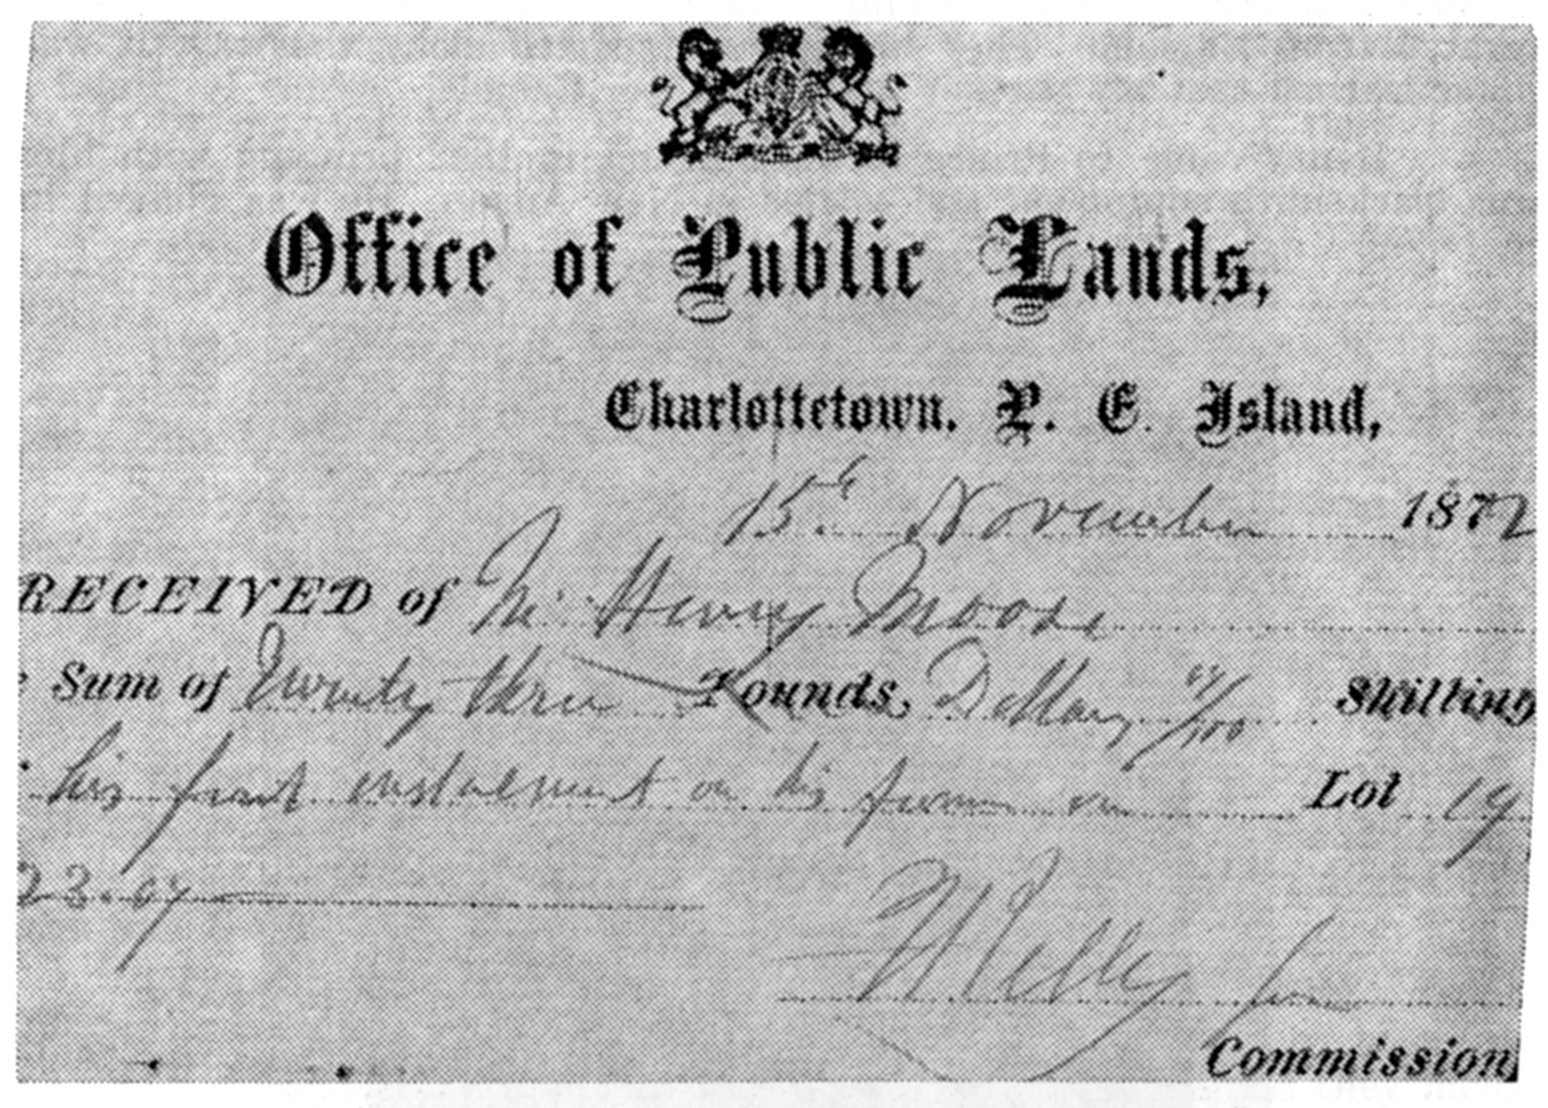 Office of Public Lands,
Charlottetown, P. E. Island,
15th November 1872
RECEIVED of Mr Henry Moore
Sum of Twenty three Pounds, Dollars /100 Shilling
his first instalment on his farm on Lot 19
23.
Commission